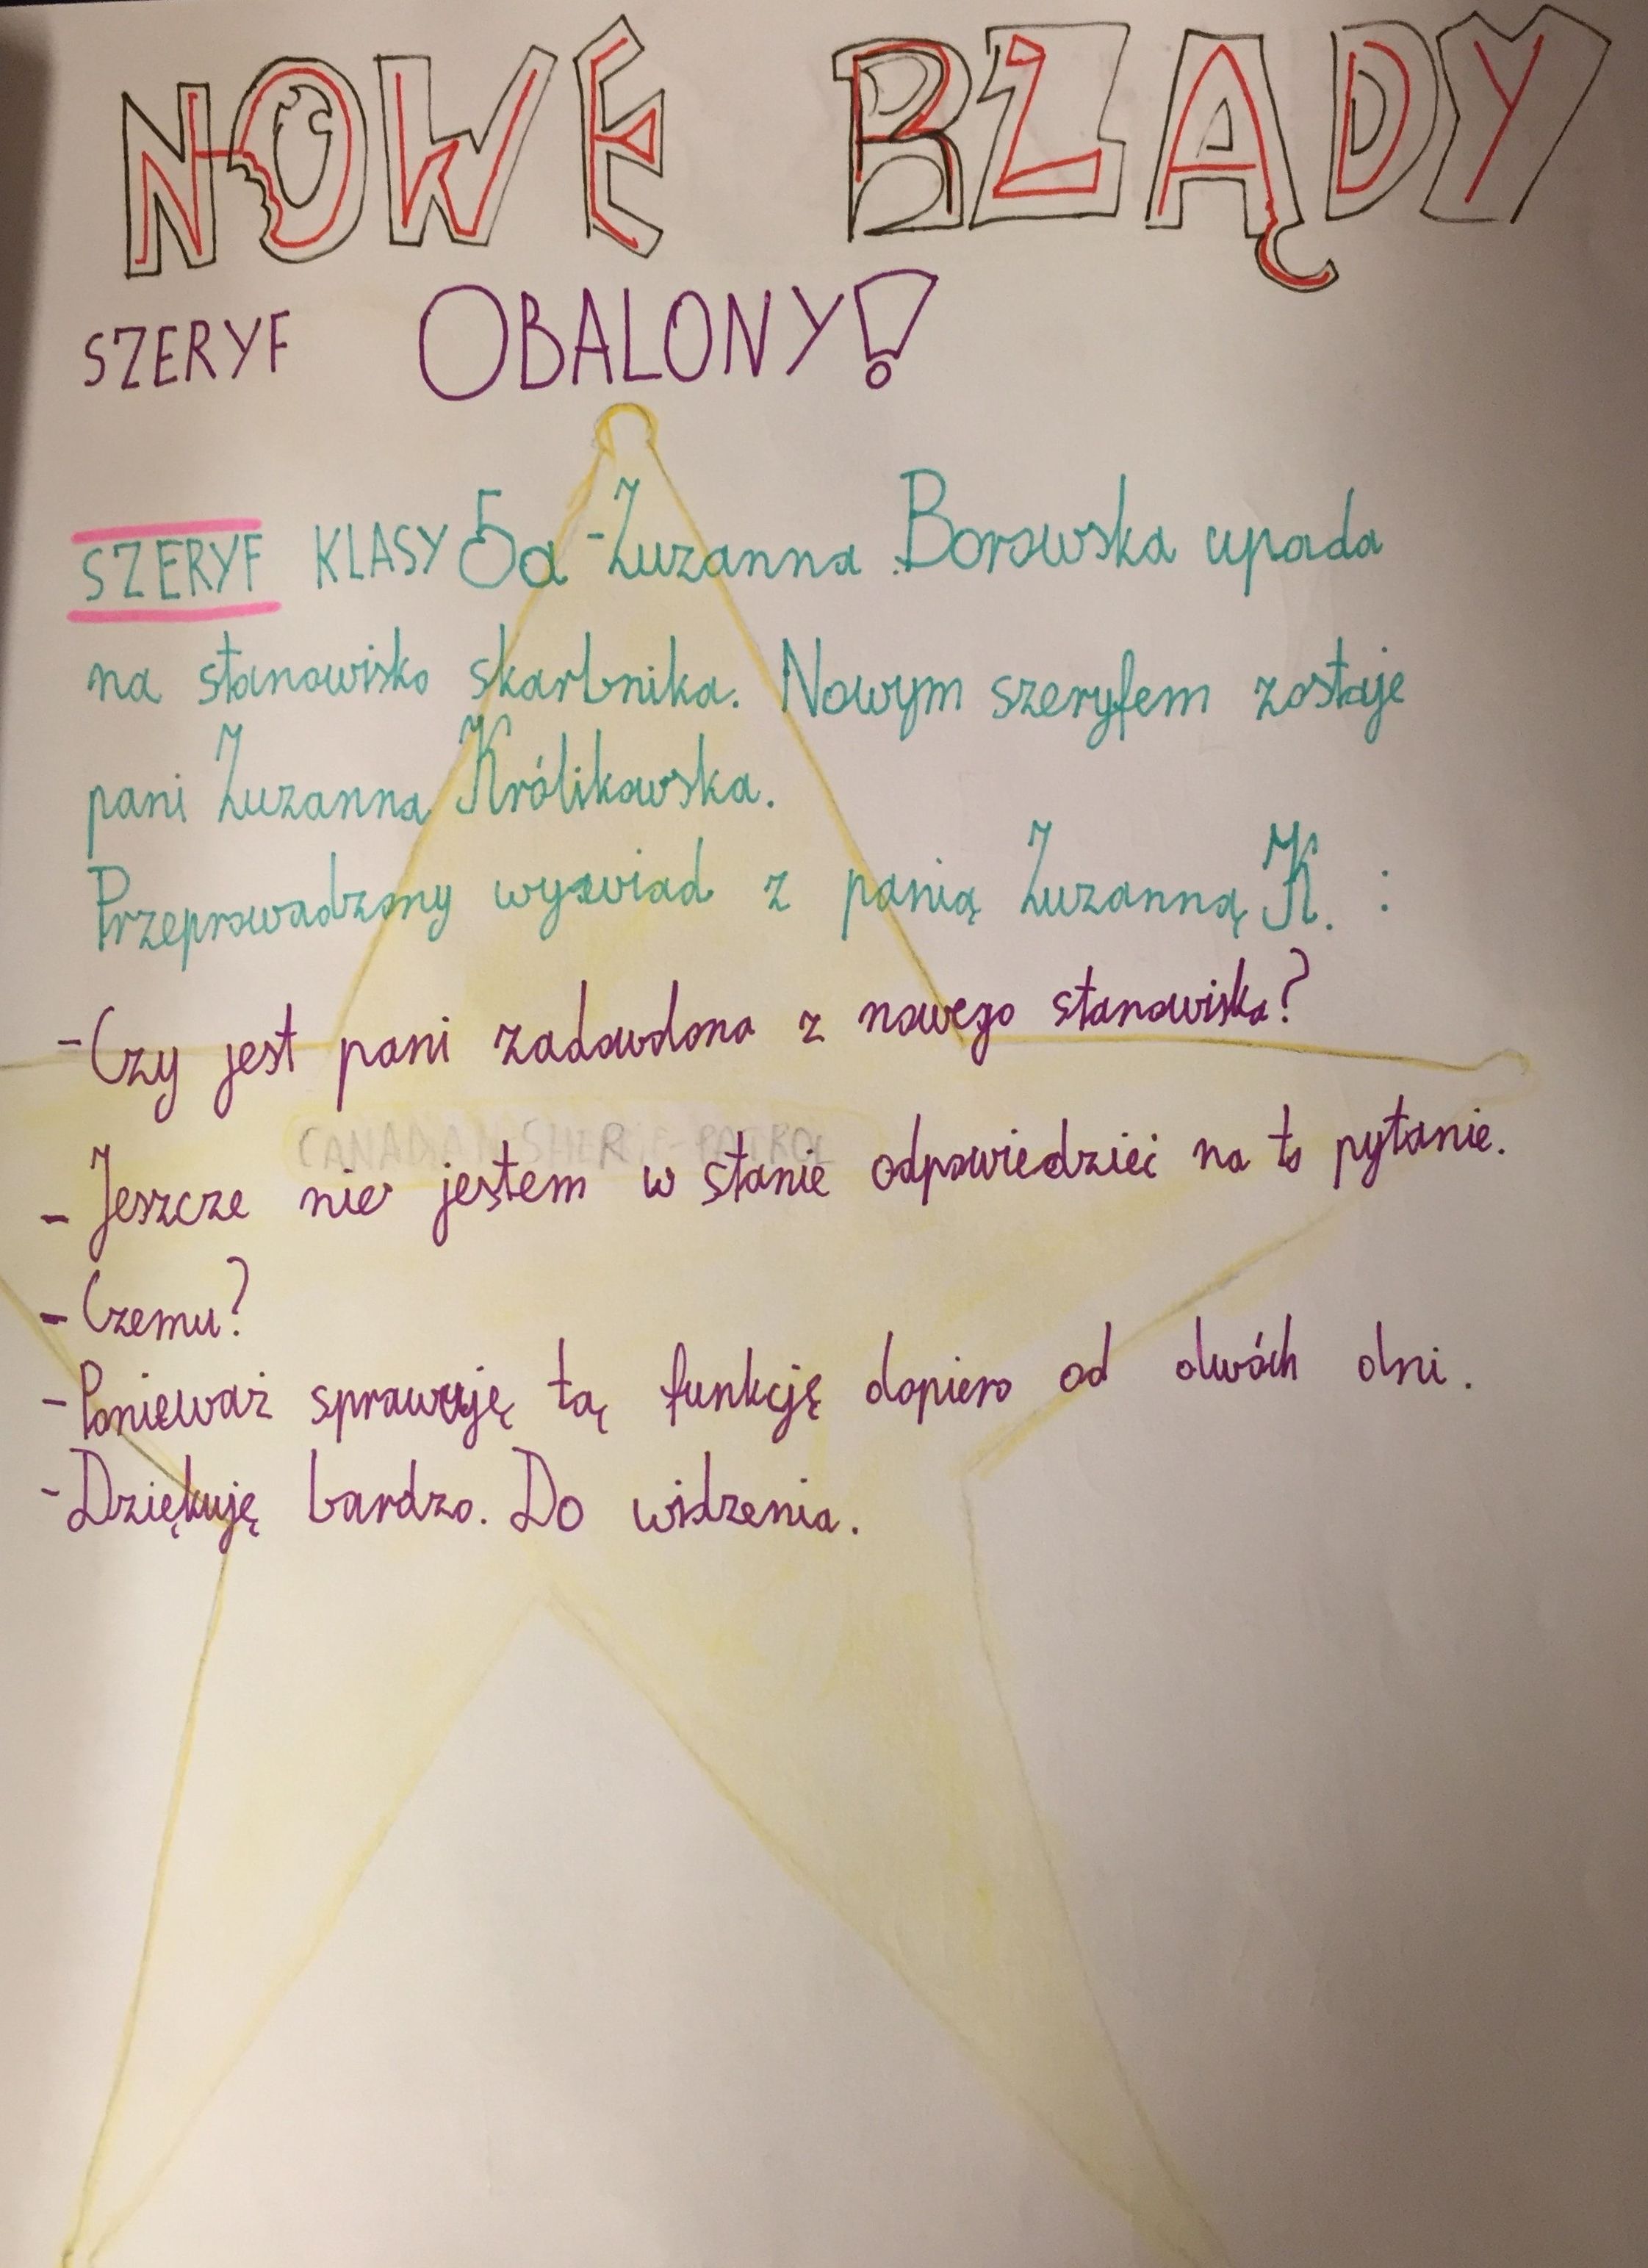 NOWE RZĄDY
SZERYF OBALONY!
SZERYF KLASY 5a - Zuzanna Borowska upada
na stanowisko skarbnika. Nowym szeryfem zostaje
pani Zuzanna Królikowska.
Przeprowadzony wywiad z panią Zuzanną K. :
- Czy jest pani zadowolona z nowego stanowiska?
CANADIAN SHERIF-PATROL
- Jeszcze nie jestem w stanie odpowiedzieć na to pytanie.
- Czemu?
- Ponieważ sprawuję tą funkcję dopiero od dwóch dni.
- Dziękuję bardzo. Do widzenia.